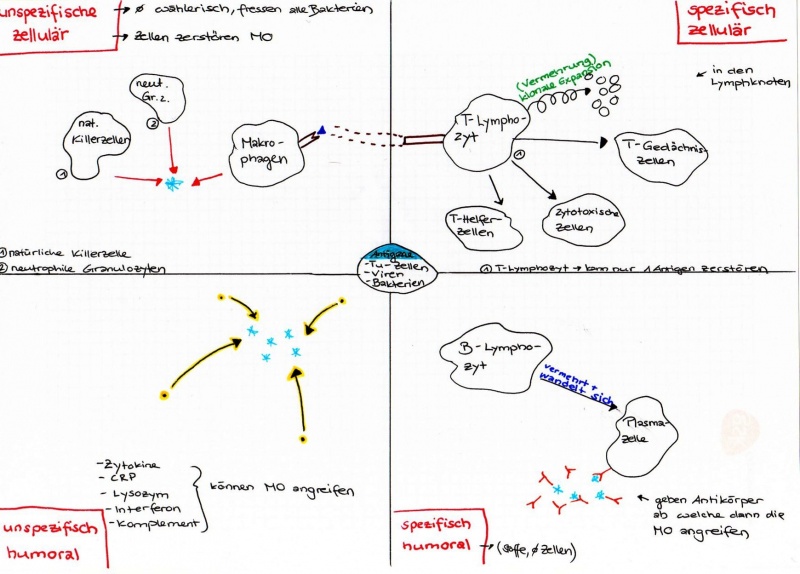 unspezifische
zellulär
→ ø wählerisch, fressen alle Bakterien
→ Zellen zerstören MO
neut.
Gr.z.
②
nat.
Killerzellen
①
Makro-
phagen
① natürliche Killerzelle
② neutrophile Granulozyten
spezifisch
zellulär
(Vermehrung)
klonale Expansion
← in den
Lymphknoten
T-Lympho-
zyt
①
T-Gedächnis-
zellen
T-Helfer-
zellen
Zytotoxische
Zellen
① T-Lymphozyt → kann nur 1 Antigen zerstören
Antigene
-Tu-Zellen
-Viren
-Bakterien
-Zytokine
- CRP
- Lysozym
- Interferon
-Komplement
können MO angreifen
unspezifisch
humoral
B-Lympho-
zyt
vermehrt +
wandelt sich
Plasma-
zelle
← geben Antikörper
ab welche dann die
MO angreifen
spezifisch
humoral
→ (Stoffe, ø Zellen)